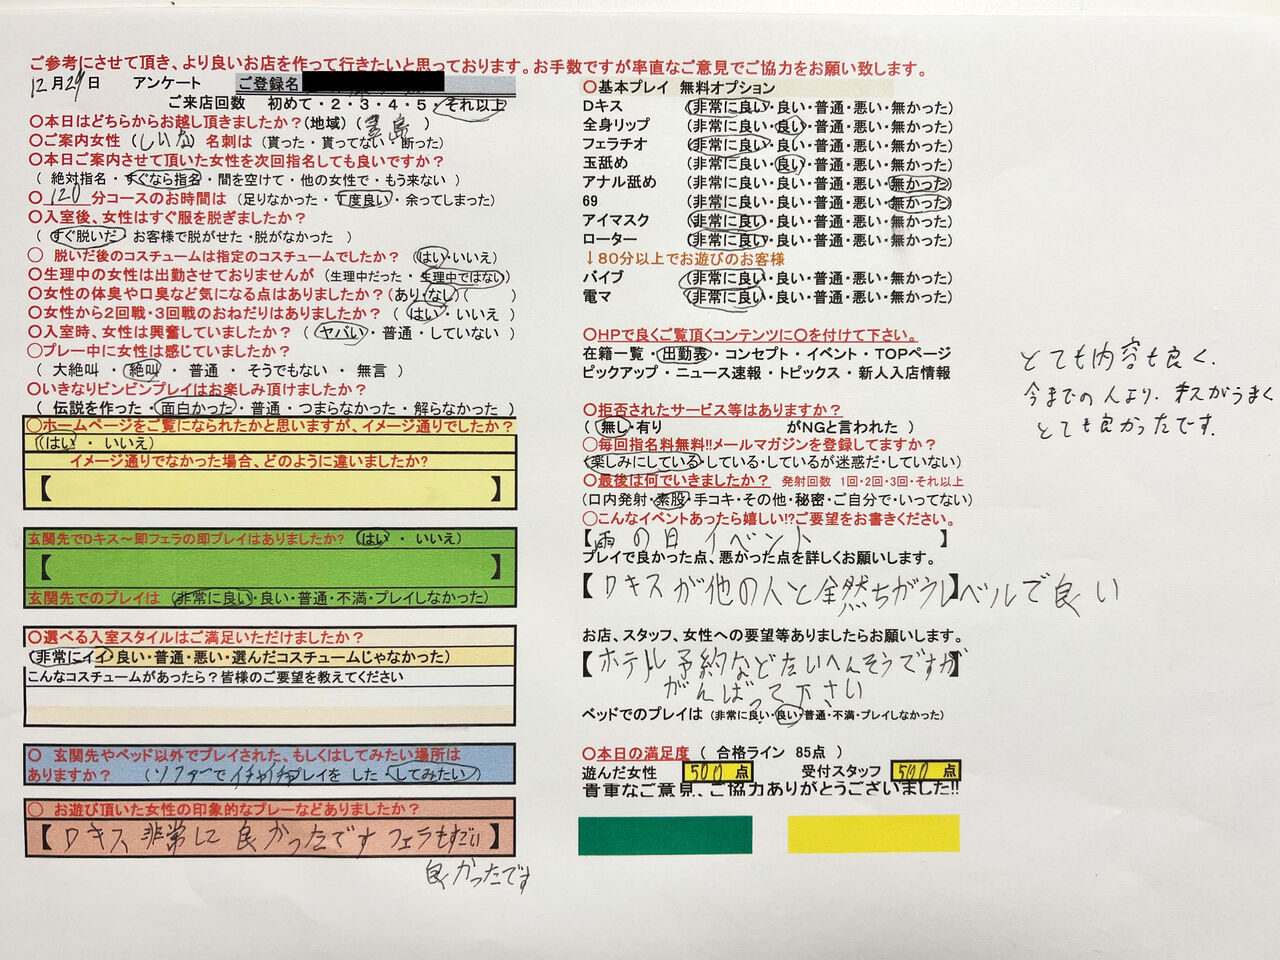 ご参考にさせて頂き、より良いお店を作って行きたいと思っております。お手数ですが率直なご意見でご協力をお願い致します。
12月29日 アンケート ご登録名
ご来店回数 初めて・2・3・4・5・それ以上
〇本日はどちらからお越し頂きましたか?(地域) ( 島 )
〇ご案内女性 (しいな) 名刺は (貰った・貰ってない・断った)
〇本日ご案内させて頂いた女性を次回指名しても良いですか?
( 絶対指名・すぐなら指名・間を空けて・他の女性で・もう来ない )
〇 120 分コースのお時間は (足りなかった・丁度良い・余ってしまった)
〇入室後、女性はすぐ服を脱ぎましたか?
( すぐ脱いだ お客様で脱がせた・脱がなかった )
〇 脱いだ後のコスチュームは指定のコスチュームでしたか? (はい・いいえ)
〇生理中の女性は出勤させておりませんが (生理中だった・生理中ではない)
〇女性の体臭や口臭など気になる点はありましたか?(あり・なし)( )
〇女性から2回戦・3回戦のおねだりはありましたか? ( はい・いいえ )
〇入室時、女性は興奮していましたか? ( ヤバい・普通・していない )
〇プレー中に女性は感じていましたか?
( 大絶叫 ・ 絶叫 ・ 普通 ・ そうでもない ・ 無言 )
〇いきなりビンビンプレイはお楽しみ頂けましたか?
( 伝説を作った・面白かった・普通・つまらなかった・解らなかった )
〇ホームページをご覧になられたかと思いますが、イメージ通りでしたか?
(はい ・ いいえ)
イメージ通りでなかった場合、どのように違いましたか?
【 】
玄関先でDキス～即フェラの即プレイはありましたか? (はい ・ いいえ)
【 】
玄関先でのプレイは (非常に良い・良い・普通・不満・プレイしなかった)
〇選べる入室スタイルはご満足いただけましたか?
(非常にイイ・良い・普通・悪い・選んだコスチュームじゃなかった)
こんなコスチュームがあったら?皆様のご要望を教えてください
〇 玄関先やベッド以外でプレイされた、もしくはしてみたい場所は
ありますか? (ソファーでイチャイチャプレイを した・してみたい)
〇 お遊び頂いた女性の印象的なプレーなどありましたか?
【 Dキス、非常に良かったです フェラもすごい 】
良かったです
〇基本プレイ 無料オプション
Dキス (非常に良い・良い・普通・悪い・無かった)
全身リップ (非常に良い・良い・普通・悪い・無かった)
フェラチオ (非常に良い・良い・普通・悪い・無かった)
玉舐め (非常に良い・良い・普通・悪い・無かった)
アナル舐め (非常に良い・良い・普通・悪い・無かった)
69 (非常に良い・良い・普通・悪い・無かった)
アイマスク (非常に良い・良い・普通・悪い・無かった)
ローター (非常に良い・良い・普通・悪い・無かった)
↓80分以上でお遊びのお客様
バイブ (非常に良い・良い・普通・悪い・無かった)
電マ (非常に良い・良い・普通・悪い・無かった)
〇HPで良くご覧頂くコンテンツに〇を付けて下さい。
在籍一覧・出勤表・コンセプト・イベント・TOPページ
ピックアップ・ニュース速報・トピックス・新人入店情報
〇拒否されたサービス等はありますか?
( 無し・有り がNGと言われた )
〇毎回指名料無料!!メールマガジンを登録してますか?
(楽しみにしている・している・しているが迷惑だ・していない)
〇最後は何でいきましたか? 発射回数 1回・2回・3回・それ以上
(口内発射・素股・手コキ・その他・秘密・ご自分で・いってない)
〇こんなイベントあったら嬉しい!?ご要望をお書きください。
【 雨の日イベント 】
プレイで良かった点、悪かった点を詳しくお願いします。
【 Dキスが他の人と全然ちがうレベルで良い 】
お店、スタッフ、女性への要望等ありましたらお願いします。
【 ホテル予約などたいへんそうですが 】
がんばって下さい
ベッドでのプレイは (非常に良い・良い・普通・不満・プレイしなかった)
〇本日の満足度 ( 合格ライン 85点 )
遊んだ女性 500 点 受付スタッフ 500 点
貴重なご意見、ご協力ありがとうございました!!
とても内容も良く、
今までの人より、キスがうまく
とても良かったです。